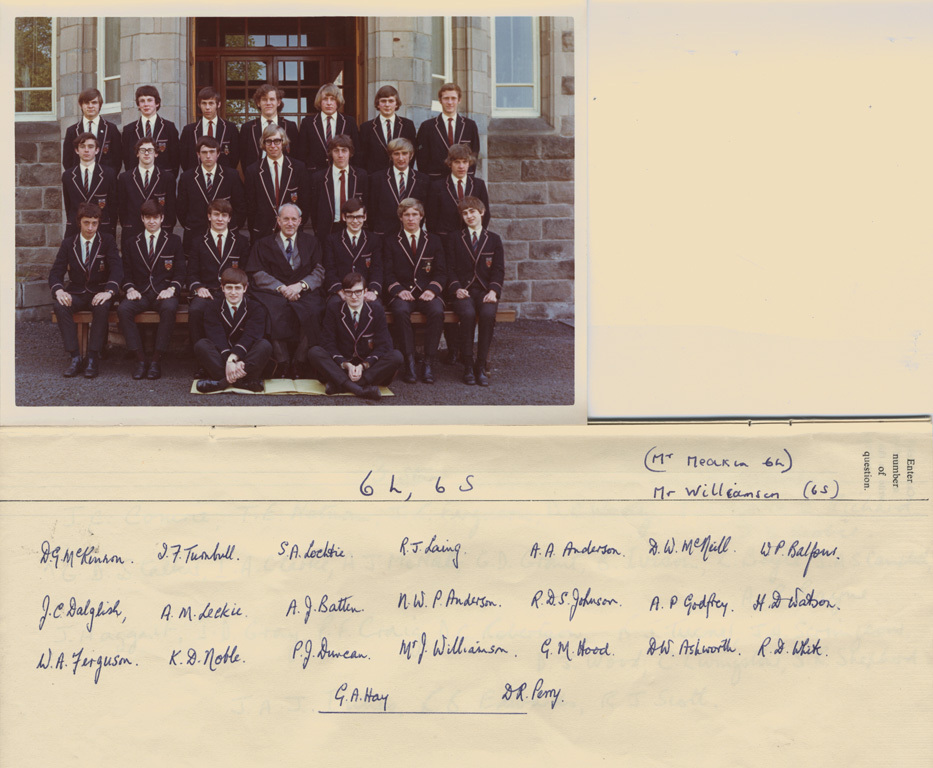 (Mr Meakin 6L)
6L, 6S
Mr Williamson (6S)
Enter
number
of
question.
D.G. McKinnon. I.F. Turnbull. S.A. Lochtie. R.J. Laing. A.A. Anderson. D.W. McNeill. W.P. Balfour.
J.C. Dalglish, A.M. Leckie. A.J. Batten. N.W.P. Anderson. R.D.S. Johnson. A.P. Godfrey. H.D. Watson.
W.A. Ferguson. K.D. Noble. P.J. Duncan. Mr J. Williamson. G.M. Hood. D.W. Ashworth. R.D. White.
G.A. Hay D.R. Perry.